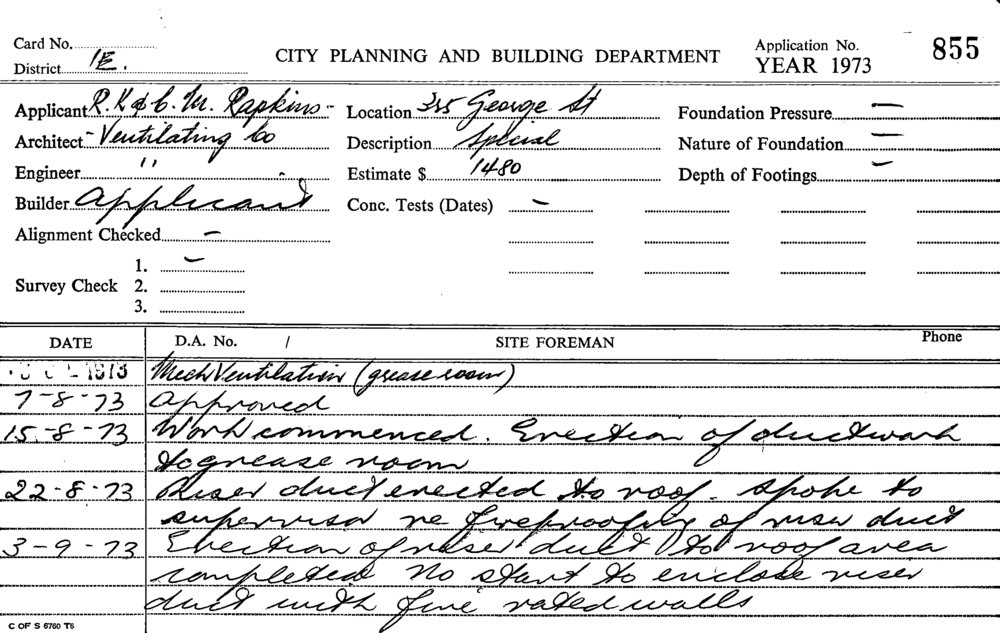 Card No.
District 1E.
CITY PLANNING AND BUILDING DEPARTMENT
Application No. 855
YEAR 1973
Applicant R.K & C. M. Rapkins Location 345 George St Foundation Pressure —
Architect Ventilating Co Description Special Nature of Foundation —
Engineer " Estimate $ 1480 Depth of Footings —
Builder Applicant Conc. Tests (Dates) —
Alignment Checked —
1. —
Survey Check 2.
3.
DATE D.A. No. / SITE FOREMAN Phone
1973 Mech Ventilation (grease room)
7-8-73 Approved
15-8-73 Work commenced. Erection of ductwork
to grease room
22-8-73 Riser duct erected to roof. Spoke to
supervisor re fireproofing of riser duct
3-9-73 Erection of riser duct to roof area
completed. No start to enclose riser
duct with fire rated walls
C OF S 6760 T6